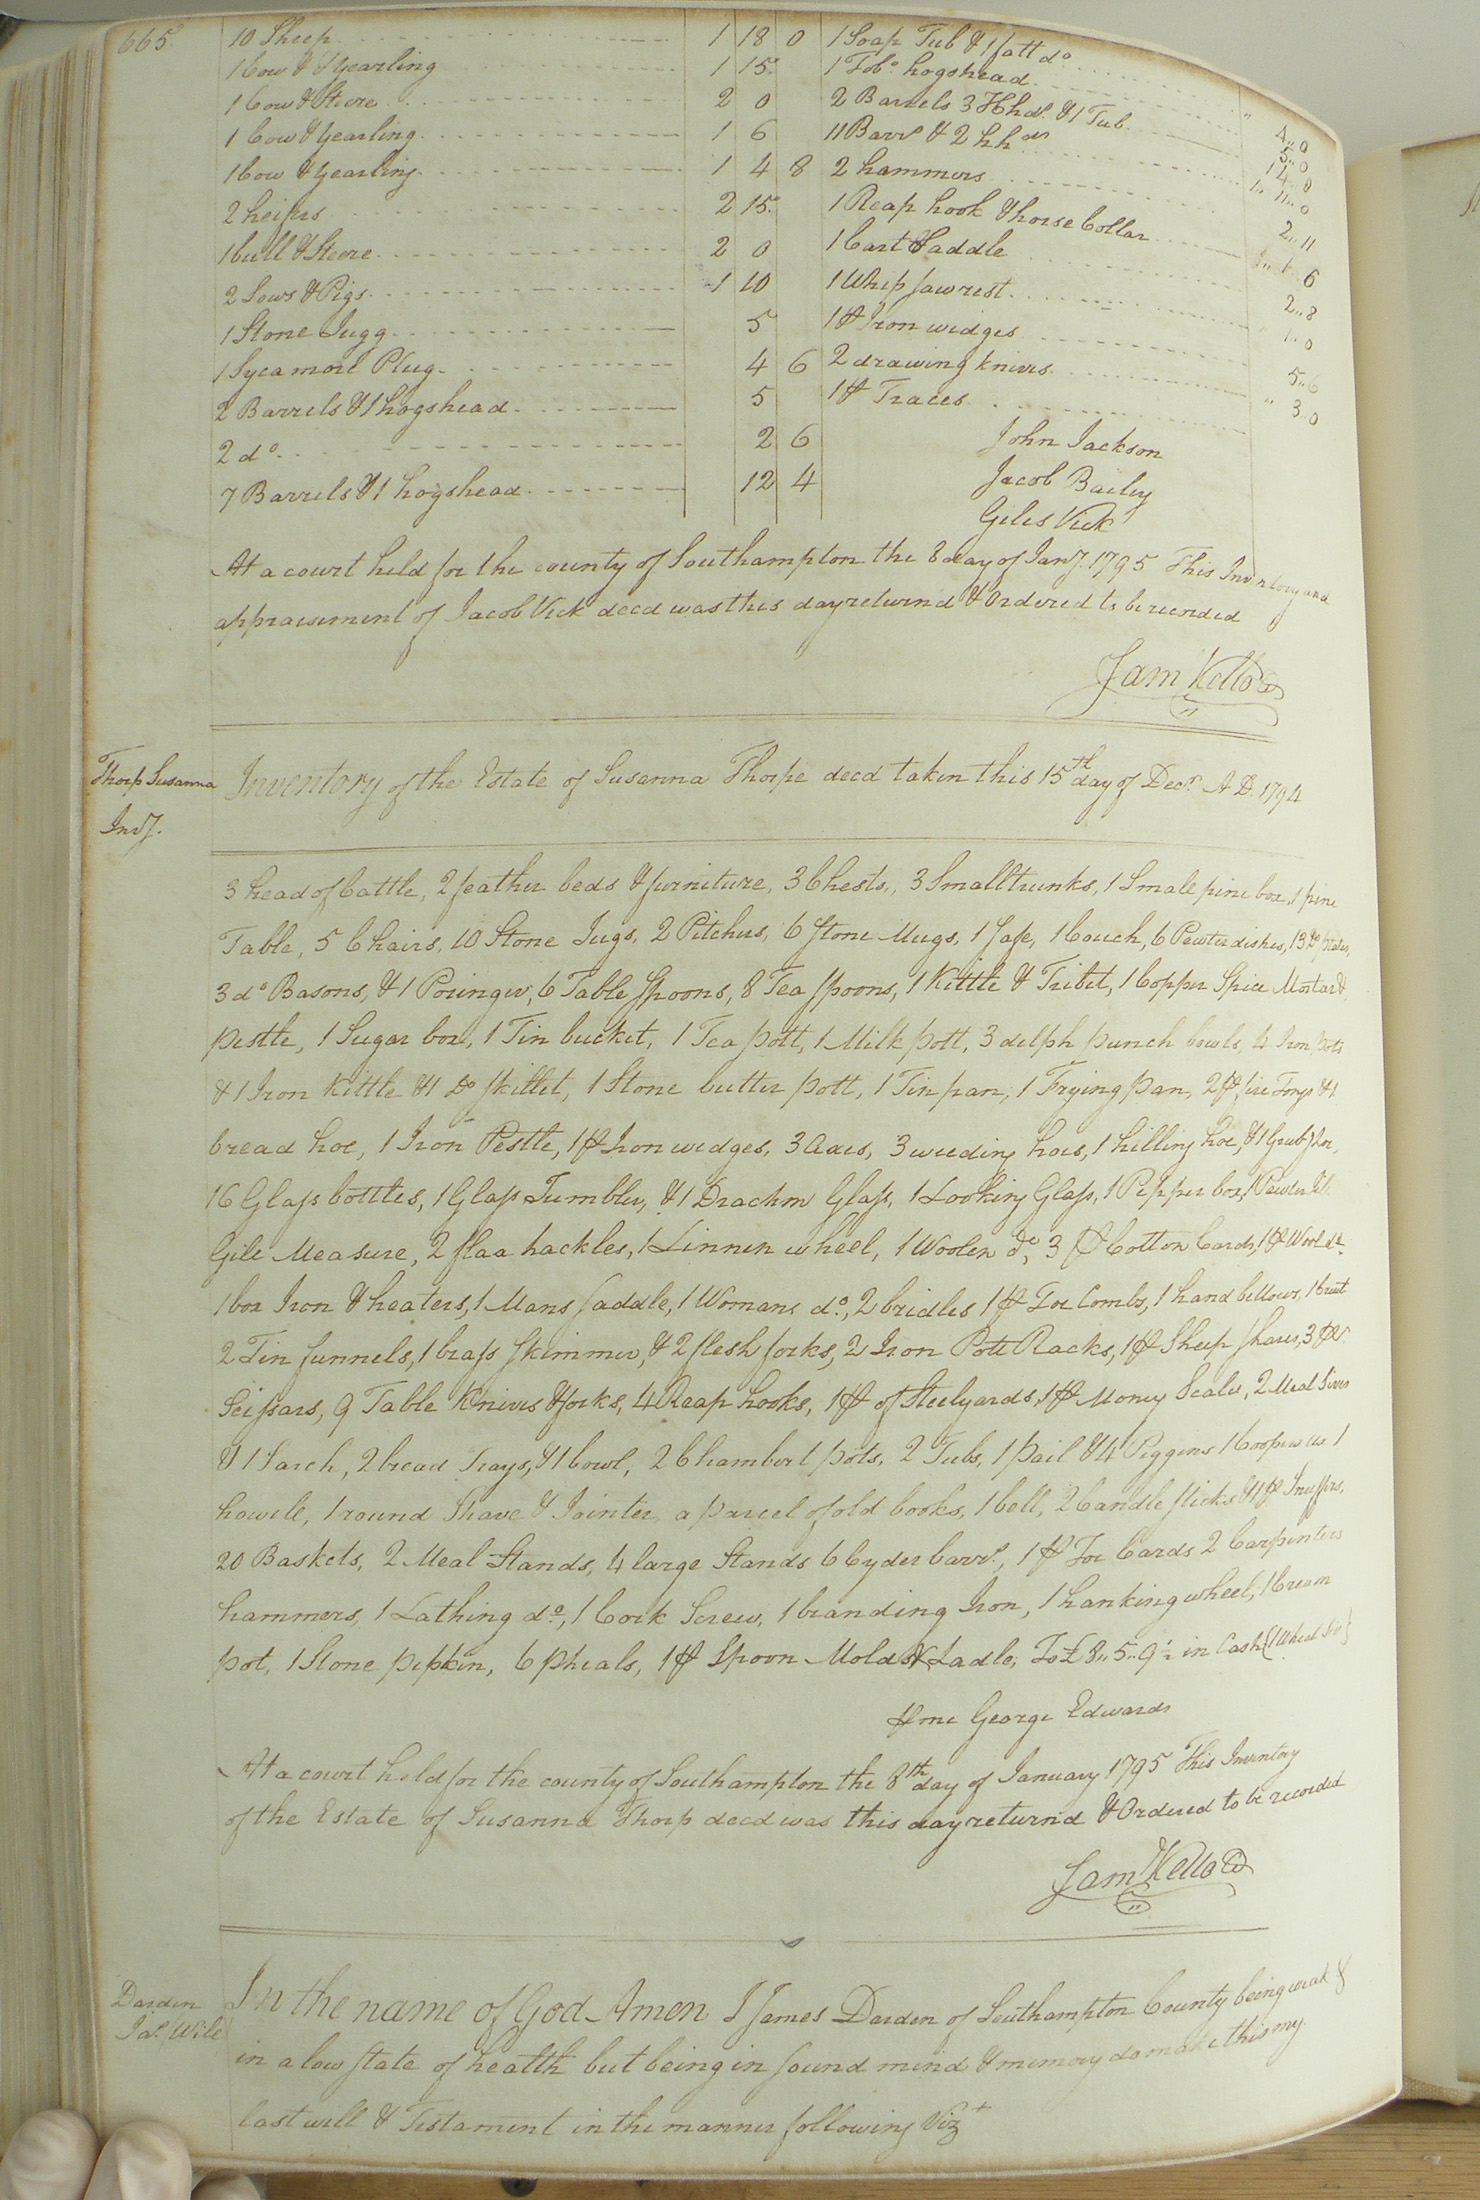 665
10 Sheep 1 18 0
1 Cow & Yearling 1 15
1 Cow & Steere 2 0
1 Cow & Yearling 1 6
1 Cow & Yearling 1 4 8
2 heifers 2 15
1 bull & Steere 2 0
2 Sows & Pigs 1 10
1 Stone Jugg 5
1 Sycamore Plug 4 6
2 Barrels & 1 hogshead 5
2 do 2 6
7 Barrels & 1 hogshead 12 4
1 Soap Tub & 1 fatt do 4..0
1 Tobo hogshead 5..0
2 Barrels 3 Hhds & 1 Tub
11 Barrs & 2 hhds
2 hammers 2..11
1 Reap hook & horse Collar 6
1 Cart Saddle 2..8
1 Whip saw rest
1 pr Iron widges 5..6
2 drawing knives 3..0
1 pr Traces
John Jackson
Jacob Bailey
Giles Vick
At a court held for the county of Southampton the 8 day of Jany. 1795 This Inventory and
appraisement of Jacob Vick decd was this day returnd & Ordered to be recorded
Sam Kello
Thorp Susanna
Invy.
Inventory of the Estate of Susanna Thorpe decd taken this 15th day of Decr. A D. 1794
3 head of Cattle, 2 feather beds & furniture, 3 Chests, 3 Small trunks, 1 Small pine box, 1 pine
Table, 5 Chairs, 10 Stone Jugs, 2 Pitchers, 6 Stone Mugs, 1 Safe, 1 Couch, 6 Pewter dishes, 13 Do plates,
3 do Basons, & 1 Poringer, 6 Table Spoons, 8 Tea spoons, 1 Kittle & Tribet, 1 Copper Spice Mortar &
pestle, 1 Sugar box, 1 Tin bucket, 1 Tea pott, 1 Milk pott, 3 delph punch bowls, 4 Iron pots
& 1 Iron Kittle & 1 Do skillet, 1 Stone butter pott, 1 Tin pan, 1 Frying pan, 2 pr fire Tongs & 1
bread hoe, 1 Iron Pestle, 1 pr Iron wedges, 3 axes, 3 weeding hoes, 1 hilling hoe, & 1 Grub hoe,
16 Glass bottles, 1 Glass Tumbler, & 1 Drachm Glass, 1 Looking Glass, 1 Pepper box, 1 Pewter
Gill Measure, 2 flax hackles, 1 Linnen wheel, 1 Woolen do, 3 pr Cotton Cards, 1 pr Wool do
1 box Iron & heaters, 1 Mans saddle, 1 Womans do, 2 bridles 1 pr Tow Combs, 1 hand bellows, 1 cruet
2 Tin funnels, 1 brass skimmer, & 2 flesh forks, 2 Iron Pott Racks, 1 pr Sheep shares, 3 pr
Scissars, 9 Table Knives & forks, 4 Reap hooks, 1 pr of Steelyards, 1 pr Money Scales, 2 Meal Sives
& 1 Sarch, 2 bread Trays, & 1 bowl, 2 Chamber pots, 2 Tubs, 1 pail & 4 Piggins 1 Coopers ax 1
howile, 1 round Shave & Jointer, a parcel of old books, 1 bell, 2 Candlesticks & 1 pr Snuffers,
20 Baskets, 2 Meal Stands, 4 large Stands 6 Cyder barrs, 1 pr Tow Cards 2 Carpenters
hammers, 1 Lathing do, 1 Cork Screw, 1 branding Iron, 1 hanking wheel, 1 Cream
pot, 1 Stone pipkin, 6 pheals, 1 pr Spoon Molds & Ladle, To £8..5..9½ in Cash
pr me George Edwards
At a court held for the county of Southampton the 8th day of January 1795 This Inventory
of the Estate of Susanna Thorp decd was this day returnd & Ordered to be recorded
Sam Kello
Darden
Jas Will
In the name of God Amen I James Darden of Southampton County being weak &
in a low state of health but being in sound mind & memory do make this my
last will & Testament in the manner following Vizt